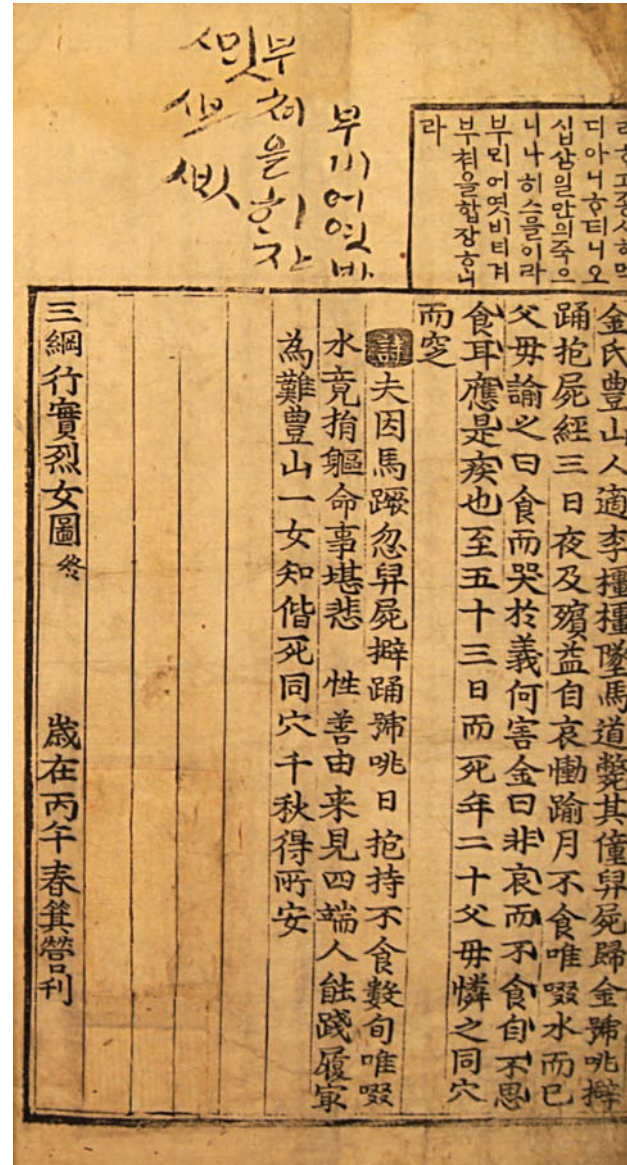 디아니ᄒᆞ더니오
십삼일만의죽으
니나히스믈이라
부뫼어엿비너겨
부쳐을합장ᄒᆞ니
라
金氏豊山人適李橿橿墜馬道斃其僮舁屍歸金號咷擗
踊抱屍經三日夜及殯益自哀慟踰月不食唯啜水而已
父母諭之曰食而哭於義何害金曰非哀而不食自不思
食耳應是疾也至五十三日而死年二十父母憐之同穴
而窆
詩 夫因馬蹶忽舁屍擗踊號咷日抱持不食數旬唯啜
水竟捐軀命事堪悲 性善由来見四端人能踐履㝡
為難豊山一女知偕死同穴千秋得所安
三綱行實烈女圖 終 歲在丙午春箕營刊